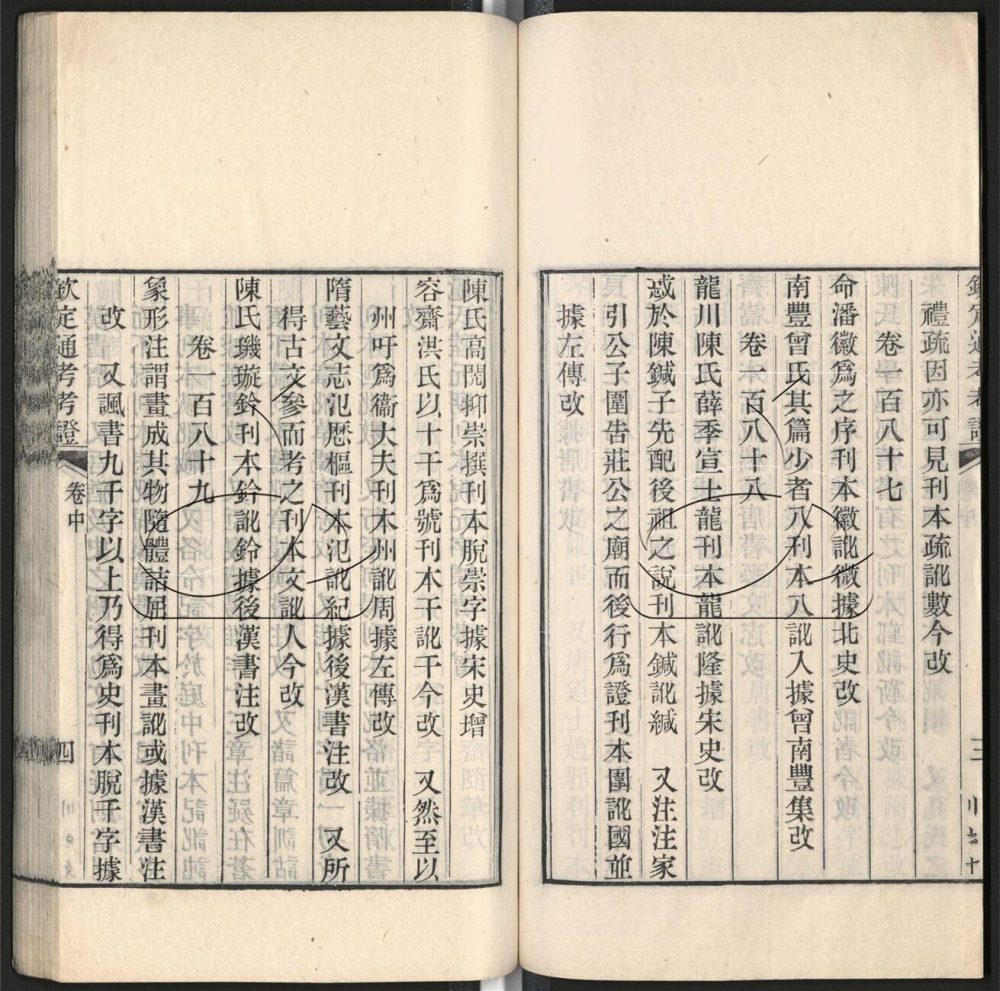 欽定通考考證
三
禮疏因亦可見刊本疏訛數今改
卷一百八十七
命潘徽爲之序刊本徽訛微據北史改
南豐曾氏其篇少者八刊本八訛入據曾南豐集改
卷一百八十八
龍川陳氏薛季宣士龍刊本龍訛隆據宋史改
惑於陳鍼子先配後祖之說刊本鍼訛緘 又注注家
引公子圍告莊公之廟而後行爲證刊本圍訛國並
據左傳改
陳氏高閌抑崇撰刊本脫崇字據宋史增
容齋洪氏以十干爲號刊本干訛千今改 又然至以
州吁爲衞大夫刊本州訛周據左傳改
隋藝文志氾歷樞刊本氾訛紀據後漢書注改 又所
得古文參而考之刊本文訛人今改
陳氏璣璇鈐刊本鈐訛鈴據後漢書注改
卷一百八十九
象形注謂畫成其物隨體詰屈刊本畫訛或據漢書注
改 又諷書九千字以上乃得爲史刊本脫千字據
欽定通考考證
卷中
四